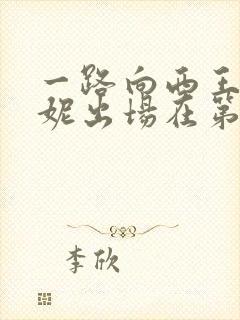 一路向西王
妮出場在第
李欣